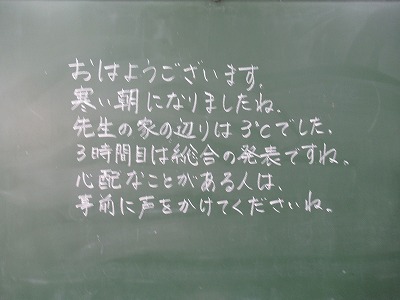 おはようございます。
寒い朝になりましたね。
先生の家の辺りは3℃でした。
3時間目は総合の発表ですね。
心配なことがある人は、
事前に声をかけてくださいね。